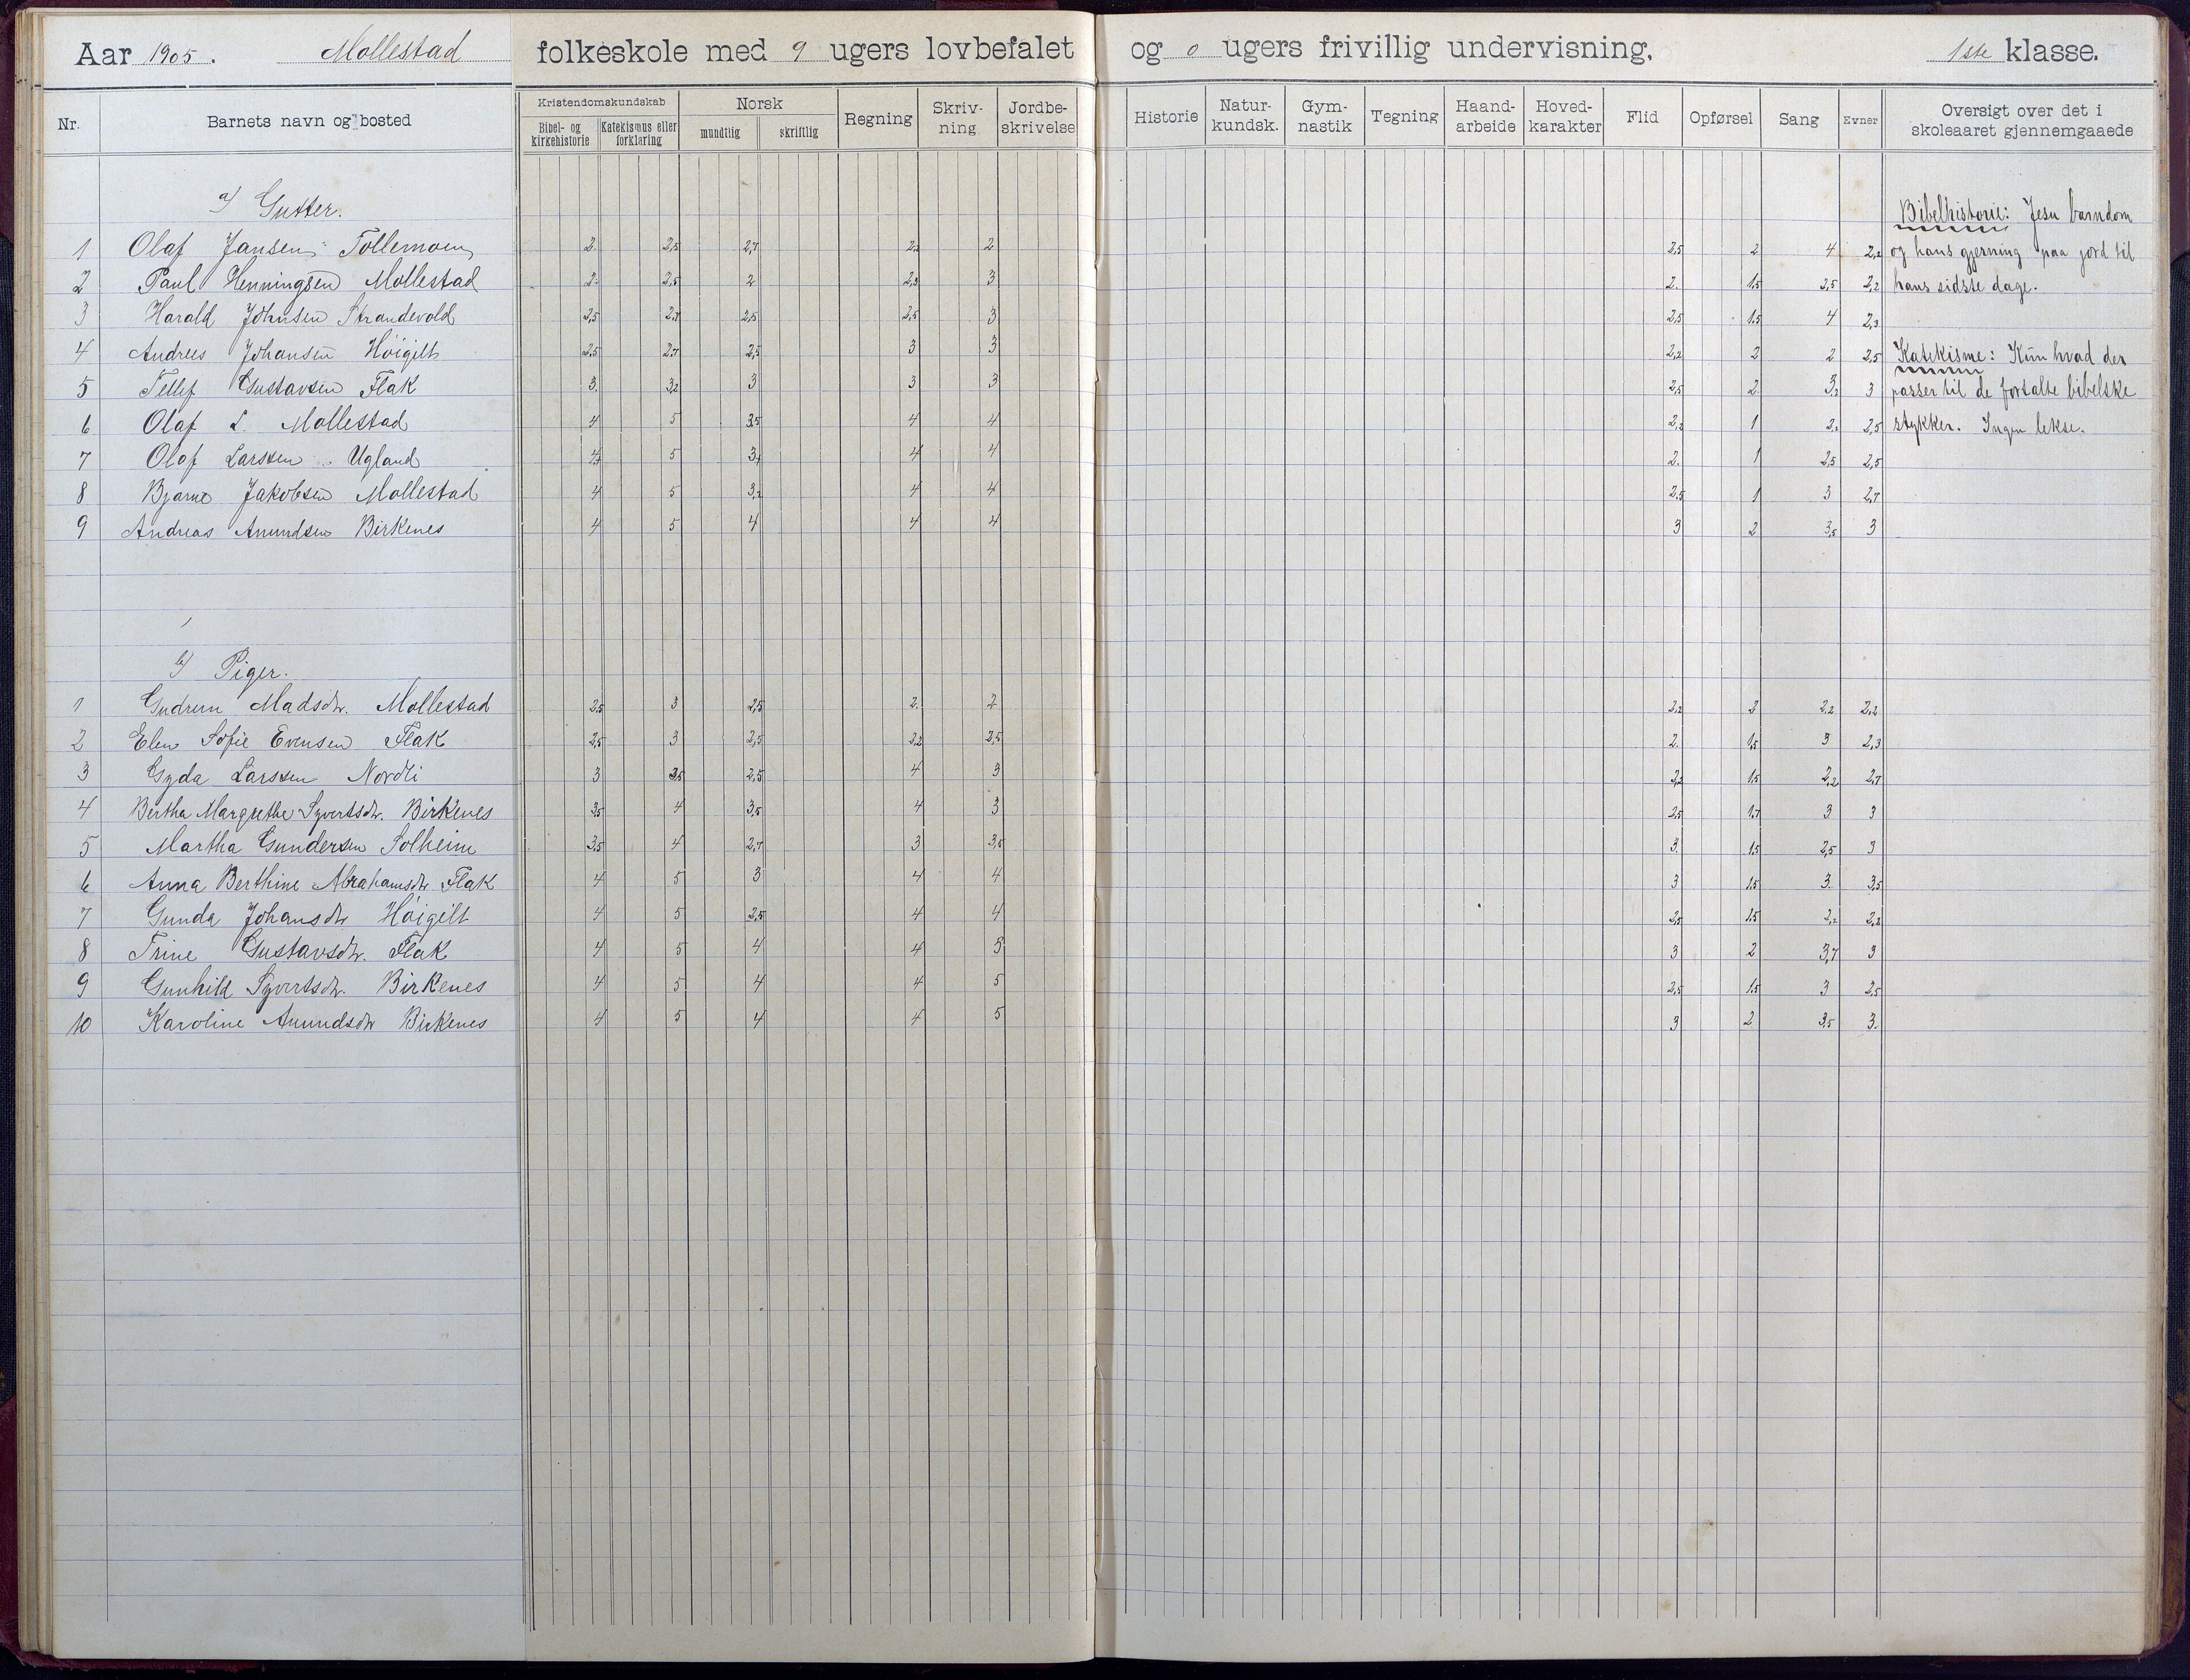 Aar 1905. Mollestad folkeskole med 9 ugers lovbefalet og 0 ugers frivillig undervisning, 1ste klasse.
Nr. Barnets navn og bosted Kristendomskundskab Bibel- og kirkehistorie Katekismus eller forklaring Norsk mundtlig skriftlig Regning Skriv-ning Jordbe-skrivelse Historie Natur-kundsk. Gym-nastik Tegning Haand-arbeide Hoved-karakter Flid Opførsel Sang Evner Oversigt over det i skoleaaret gjennemgaaede
a) Gutter. Bibelhistorie: Jesu barndom
1 Olaf Jansen Tollemoen 2 2,5 2,7 2,2 2 2,5 2 4 2,2 og hans gjerning paa jord til
2 Paul Henningsen Mollestad 2 2,5 2 2,3 3 2 1,5 2,5 2,2 hans sidste dage.
3 Harald Johnsen Strandevold 2,5 2,7 2,5 2,5 3 2,5 1,5 4 2,3
4 Andrees Johansen Höigilt 2,5 2,7 2,5 3 3 2,2 2 2 2,5 Katekisme: Kun hvad der
5 Tellef Gustavsen Flak 3 3,2 3 3 3 2,5 2 3,2 3 passer til de fortalte bibelske
6 Olaf L. Mollestad 4 5 3,5 4 4 2,2 1 2,2 2,5 stykker. Ingen lekse.
7 Olaf Larssen Ugland 4 5 4 4 2. 1 2,5 2,5
8 Bjarne Jakobsen Mollestad 4 5 3,2 4 4 2,5 1 3 2,7
9 Andreas Anundsen Birkenes 4 5 4 4 4 3 2 3,5 3
b) Piger.
1 Gudrun Madsdtr. Mollestad 2,5 3 2,5 2 2 2,2 2 2,2 2,2
2 Elen Sofie Evensen Flak 2,5 3 2,5 2,2 2,5 2. 1,5 3 2,3
3 Gyda Larssen Nordli 3 3,5 2,5 4 3 2,2 1,5 2,2 2,7
4 Bertha Margrethe Syvertsdtr. Birkenes 3,5 4 3,5 4 3 2,5 1,7 3 3
5 Martha Gundersen Solheim 3,5 4 2,7 3 3,5 3. 1,5 2,5 3
6 Anna Berthine Abrahamsdtr Flak 4 5 3 4 4 3 1,5 3. 3,5
7 Gunda Johansdtr Höigilt 4 5 2,5 4 4 2,5 1,5 2,2 2,2
8 Trine Gustavsdtr. Flak 4 5 4 4 5 3 2 3,7 3
9 Gunhild Syvertsdtr. Birkenes 4 5 4 4 5 2,5 1,5 3 2,5
10 Karoline Anundsdtr Birkenes 4 5 4 4 5 3 2 3,5 3.